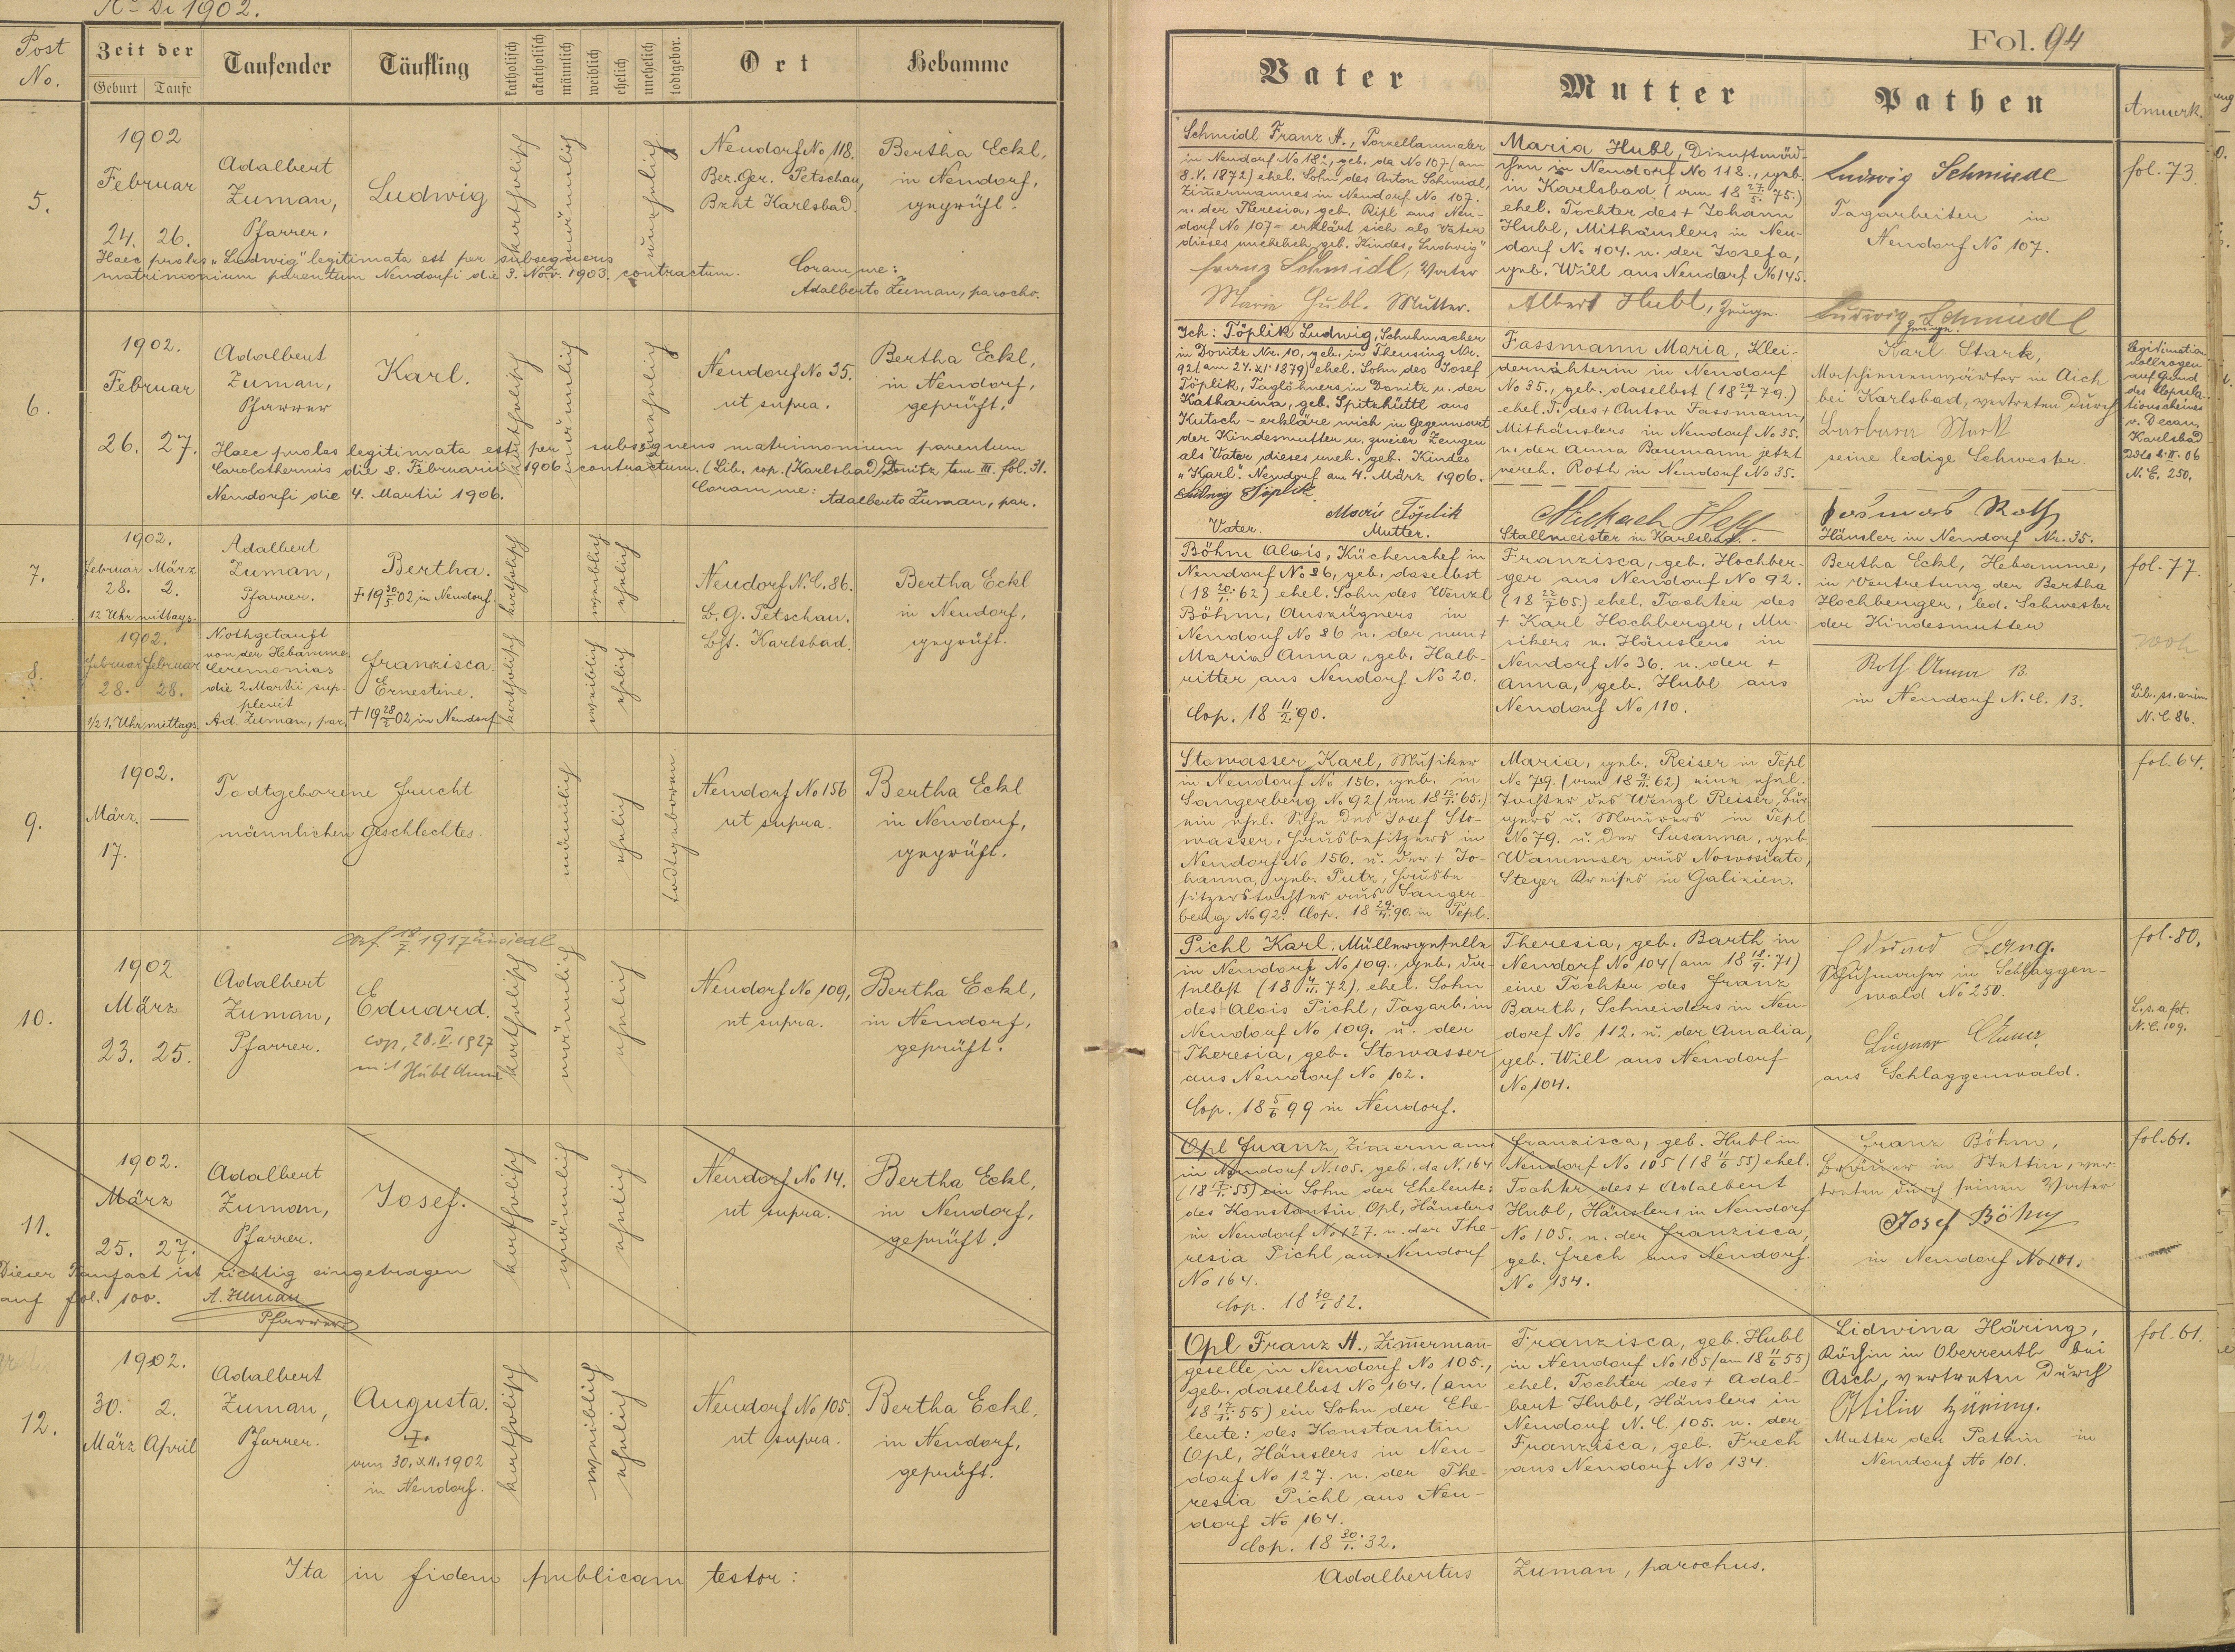 Ao Di 1902.
Post No.
Zeit der
Geburt Taufe
Taufender
Täufling
katholisch
akatholisch
männlich
weiblich
ehelich
unehelich
todtgebor.
Ort
Hebamme
5.
1902
Februar
24. 26.
Adalbert
Zuman,
Pfarrer.
Ludwig
katholisch
männlich
unehelich
Neudorf No 118.
Bez. Ger. Petschau,
Bzht Karlsbad.
Bertha Eckl,
in Neudorf,
geprüft.
Haec proles „Ludwig" legitimata est per subsequens
matrimonium parentum Neudorfi die 3. Nov. 1903. contractum.
Coram me:
Adalberto Zuman, parocho.
6.
1902.
Februar
26. 27.
Adalbert
Zuman,
Pfarrer
Karl.
katholisch
männlich
unehelich
Neudorf No 35.
ut supra.
Bertha Eckl,
in Neudorf,
geprüft.
Haec proles legitimata est per subsequens matrimonium parentum
Carolothermis die 8. Februarii 1906 contractum. (Lib. cop. (Karlsbad) Donitz tom III. fol. 31.
Neudorfi die 4. Martii 1906.
Coram me: Adalberto Zuman, par.
7.
1902.
Februar März
28. 2.
12 Uhr mittags.
Adalbert
Zuman,
Pfarrer.
Bertha.
† 19 30/5 02 in Neudorf.
katholisch
weiblich
ehelich
Neudorf N. C. 86.
B. G. Petschau.
Bht. Karlsbad.
Bertha Eckl
in Neudorf,
geprüft.
8.
1902.
Februar Februar
28. 28.
1/2 1. Uhr mittags.
Nothgetauft
von der Hebamme.
Ceremonias
die 2 Martii sup-
plevit
Ad. Zuman, par.
Franzisca
Ernestine.
† 19 28/2 02 in Neudorf
katholisch
weiblich
ehelich
9.
1902.
März. —
17.
Todtgeborene Frucht
männlichen Geschlechtes.
männlich
ehelich
todtgeboren
Neudorf No 156
ut supra.
Bertha Eckl
in Neudorf,
geprüft.
10.
1902
März
23. 25.
Adalbert
Zuman,
Pfarrer.
18/7. 1917
Eduard.
cop. 28. V. 1927
mit Hübl Anna
katholisch
männlich
ehelich
Neudorf No 109,
ut supra.
Bertha Eckl,
in Neudorf,
geprüft.
11.
1902.
März
25. 27.
Adalbert
Zuman,
Pfarrer.
Josef.
katholisch
männlich
ehelich
Neudorf No 14.
ut supra.
Bertha Eckl,
in Neudorf,
geprüft.
Dieser Taufact ist richtig eingetragen
auf fol. 100. A. Zuman
Pfarrer
12.
1902.
30. 2.
März April
Adalbert
Zuman,
Pfarrer.
Augusta.
†
am 30. XII. 1902
in Neudorf.
katholisch
weiblich
ehelich
Neudorf No 105.
ut supra.
Bertha Eckl,
in Neudorf,
geprüft.
Ita in fidem publicam testor:
Fol. 94
Vater
Mutter
Pathen
Anmerk.
Schmidl Franz A., Porzellanmaler
in Neudorf No 182, geb. da No 107 (am
8. V. 1872) ehel. Sohn des Anton Schmidl,
Zimermannes in Neudorf No 107.
u. der Theresia, geb. Ripl aus Neu-
dorf No 107 - erklärt sich als Vater
dieses unehelich geb. Kindes „Ludwig"
Franz Schmidl, Vater
Marie Hubl. Mutter.
Maria Hubl, Dienstmäd-
chen in Neudorf No 118., geb.
in Karlsbad (am 18 27./5. 75.)
ehel. Tochter des † Johann
Hubl, Mithäuslers in Neu-
dorf No 104. u. der Josefa,
geb. Will aus Neudorf No 145.
Albert Hubl, Zeuge.
Ludwig Schmiedl
Tagarbeiter in
Neudorf No 107.
Ludwig Schmiedl
Zeuge.
fol. 73.
Ich: Töplik Ludwig, Schuhmacher
in Donitz Nr. 10, geb. in Theusing Nr.
92 (am 24. XI. 1879) ehel. Sohn des Josef
Töplik, Taglöhners in Donitz u. der
Katharina, geb. Spitzhüttl aus
Kutsch - erkläre mich in Gegenwart
der Kindesmutter u. zweier Zeugen
als Vater dieses uneh. geb. Kindes
„Karl". Neudorf am 4. März 1906.
Ludwig Töplik
Vater.
Marie Töplik
Mutter.
Fassmann Maria, Klei-
dernähterin in Neudorf
No 35., geb. daselbst (18 29/1 79.)
ehel. T. des † Anton Fassmann,
Mithäuslers in Neudorf No 35.
u. der Anna Baumann jetzt
vereh. Roth in Neudorf No 35.
Stallmeister in Karlsbad.
Karl Stark,
Maschienenwärter in Aich
bei Karlsbad, vertreten durch
Barbara Stark
seine ledige Schwester.
Roth
Häusler in Neudorf Nr. 35.
Legitimation
vollzogen
auf Grund
des Copula-
tionscheines
v. Decan.
Karlsbad
Ddo 8. II. 06
N. E. 250.
Böhm Alois, Küchenchef in
Neudorf No 86, geb. daselbst
(18 20/1. 62) ehel. Sohn des Wenzl
Böhm, Auszügners in
Neudorf No 86 u. der nun †
Maria Anna, geb. Halb-
ritter aus Neudorf No 20.
Cop. 18 11/2. 90.
Franzisca, geb. Hochber-
ger aus Neudorf No 92.
(18 22/7 65.) ehel. Tochter des
† Karl Hochberger, Mu-
sikers u. Häuslers in
Neudorf No 36. u. der †
Anna, geb. Hubl aus
Neudorf No 110.
Bertha Eckl, Hebamme,
in Vertretung der Bertha
Hochberger, led. Schwester
der Kindesmutter
Roth Anna 13.
in Neudorf N. C. 13.
fol. 77.
N. C. 86.
Stowasser Karl, Musiker
in Neudorf No 156. geb. in
Sangerberg No 92 (am 18 12./1. 65.)
ein ehel. Sohn des Josef Sto-
wasser, Hausbesitzers in
Neudorf No 156. u. der † Jo-
hanna, geb. Putz, Hausbe-
sitzerstochter aus Sanger-
berg No 92. Cop. 18 29./4. 90. in Tepl.
Maria, geb. Reiser in Tepl
No 79. (am 18 9./11. 62) eine ehel.
Tochter des Wenzl Reiser, Bür-
gers u. Maurers in Tepl
No 79. u. der Susanna, geb.
Wammser aus Nowosiato,
Steyer Kreises in Galizien.
fol. 64.
Pichl Karl, Müllergeselle
in Neudorf No 109., geb. da-
selbst (18 4/11. 72), ehel. Sohn
des Alois Pichl, Tagarb. in
Neudorf No 109. u. der
Theresia, geb. Stowasser
aus Neudorf No 102.
Cop. 18 5/6 99 in Neudorf.
Theresia, geb. Barth in
Neudorf No 104 (am 18 18./9. 71)
eine Tochter des Franz
Barth, Schneiders in Neu-
dorf No. 112. u. der Amalia,
geb. Will aus Neudorf
No 104.
Eduard Lang.
Schuhmacher in Schlaggen-
wald No 250.
aus Schlaggenwald.
fol. 80.
N. C. 109.
Opl Franz, Zimermann
in Neudorf N. 105. geb. da N. 164
(18 17./1. 55) ein Sohn der Eheleute:
des Konstantin Opl, Häuslers
in Neudorf No 127. u. der The-
resia Pichl aus Neudorf
No 164.
Cop. 18 30/1 82.
Franzisca, geb. Hubl in
Neudorf No 105 (18 11/6 55) ehel.
Tochter des † Adalbert
Hubl, Häuslers in Neudorf
No 105. u. der Franzisca,
geb. Frech aus Neudorf.
No 134.
Franz Böhm,
Bräuer in Stettin, ver-
treten durch seinen Vater
Josef Böhm
in Neudorf No 101.
fol. 61.
Opl Franz A., Zimmermann
geselle in Neudorf No 105.,
geb. daselbst No 164. (am
18 17./1. 55) ein Sohn der Ehe-
leute: des Konstantin
Opl, Häuslers in Neu-
dorf No 127. u. der The-
resia Pichl aus Neu-
dorf No 164.
Cop. 18 30./1. 82.
Franzisca, geb. Hubl
in Neudorf No 105 (am 18 11/6 55)
ehel. Tochter des † Adal-
bert Hubl, Häuslers in
Neudorf N. C. 105. u. der
Franzisca, geb. Frech
aus Neudorf No 134.
Lidwina Häring,
Köchin in Oberreuth bei
Asch, vertreten durch
Ottilie Häring.
Mutter der Pathin in
Neudorf No 101.
fol. 61.
Adalbertus Zuman, parochus.